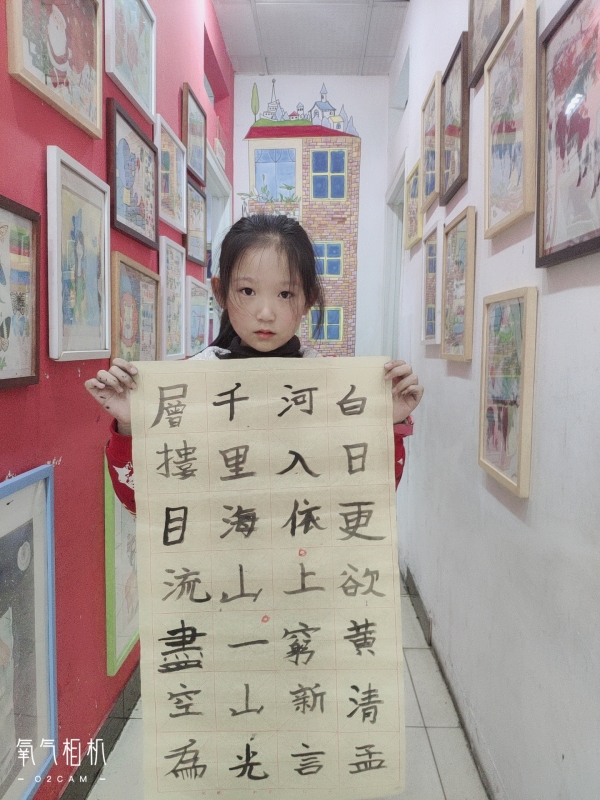 白日更欲黄清孟
河入依上窮新言
千里海山一山光
層摟目流盡空為
氧气相机
– O2CAM –